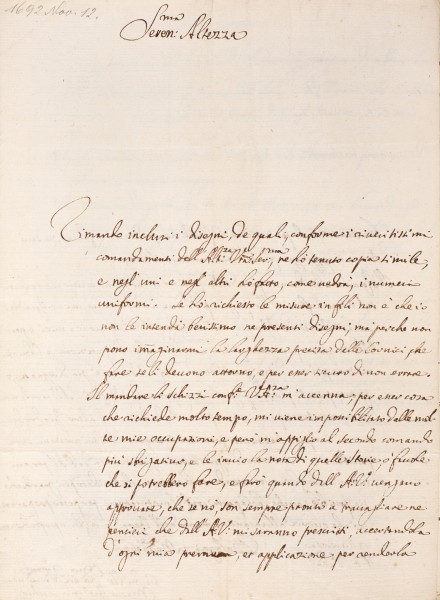 1692 Nov. 12.
Seren:ma Altezza
Rimando inclusi i disegni, de quali, conforme i riveritissimi
comandamenti dell'Alt:za Vra Ser:ma, ne hò tenuto copia simile,
e negl'uni e negl'altri hò fatto, come vedrà, i numeri
uniformi. se hò richiesto le misure in fili non è che io
non le intenda benissimo ne presenti disegni, mà perche non
posso imaginarmi la larghezza precisa delle Cornici che
fare se li devono attorno, e per esser sicuro di non errare.
Il mandare li schizzi conf:e V:A: m'accenna, per esser cosa
che richiede molto tempo, mi viene impossibilitato dalle mol-
te mie occupazioni, e però m'appiglio al secondo comando
più sbrigativo, e le invio la nota di quelle storie, ò favole
che si potrebbero fare, e farò quando dall'A:V: vengano
approvate, che se nò, son sempre pronto a travagliare ne
pensieri che dall'A:V: mi saranno prescritti, accertandola
d'ogni mia premura, et applicazione per renderla